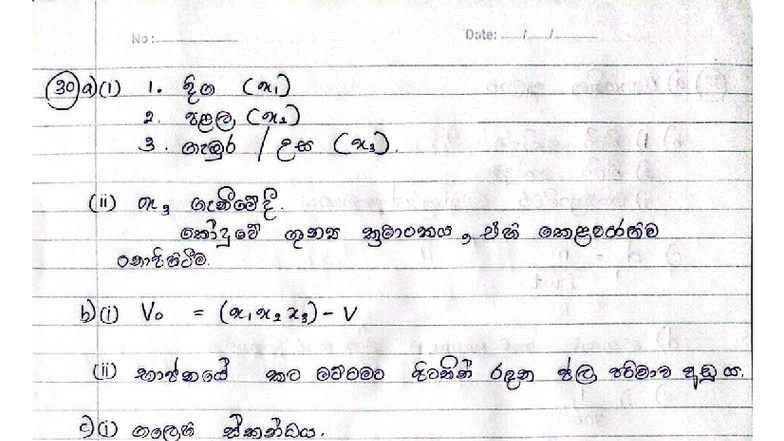 No: Date: / /
30 a) (i) 1. දිග (x₁)
2. පළල (x₂)
3. ගැඹුර / උස (x₃).
(ii) x₃ ගැනීමේදී.
කෝදුවේ ශුන්‍ය ක්‍රමාංකනය, එහි කෙළවරෙහිම
නොපිහිටීම.
b) (i) V₀ = (x₁ x₂ x₃) - V
(ii) භාජනයේ කට මට්ටමට පිටතින් රඳන ජල පරිමාව අඩු ය.
c) (i) ගලෙහි ස්කන්ධය.